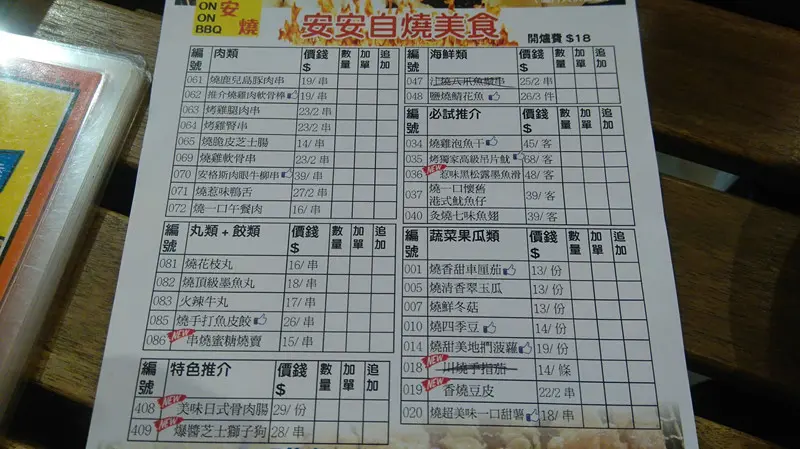 ON 安
ON 燒
BBQ
安安自燒美食
開爐費 $18
編號 肉類 價錢$ 數量 加單 追加
061 燒鹿兒島豚肉串 19/串
062 推介燒雞肉軟骨棒 19/串
063 烤雞腿肉串 23/2串
064 烤雞腎串 23/2串
065 燒脆皮芝士腸 14/串
069 燒雞軟骨串 23/2串
070 安格斯肉眼牛柳串 39/串
071 燒惹味鴨舌 27/2串
072 燒一口午餐肉 16/串
編號 丸類+餃類 價錢$ 數量 加單 追加
081 燒花枝丸 16/串
082 燒頂級墨魚丸 18/串
083 火辣牛丸 17/串
085 燒手打魚皮餃 26/串
086 NEW 串燒蜜糖燒賣 15/串
編號 特色推介 價錢$ 數量 加單 追加
408 NEW 美味日式骨肉腸 29/份
409 NEW 爆醬芝士獅子狗 28/串
編號 海鮮類 價錢$ 數量 加單 追加
047 汁燒八爪魚鬚串 25/2串
048 鹽燒鯖花魚 26/3件
編號 必試推介 價錢$ 數量 加單 追加
034 燒雞泡魚干 45/客
035 烤獨家高級吊片魷 68/客
036 NEW 惹味黑松露墨魚滑 48/客
037 燒一口懷舊港式魷魚仔 39/客
040 灸燒七味魚翅 39/客
編號 蔬菜果瓜類 價錢$ 數量 加單 追加
001 燒香甜車厘茄 13/份
005 燒清香翠玉瓜 13/份
007 燒鮮冬菇 13/份
010 燒四季豆 14/份
014 燒甜美地捫菠蘿 19/份
018 NEW 川燒手指茄 14/條
019 NEW 香燒豆皮 22/2串
020 燒超美味一口甜薯 18/串